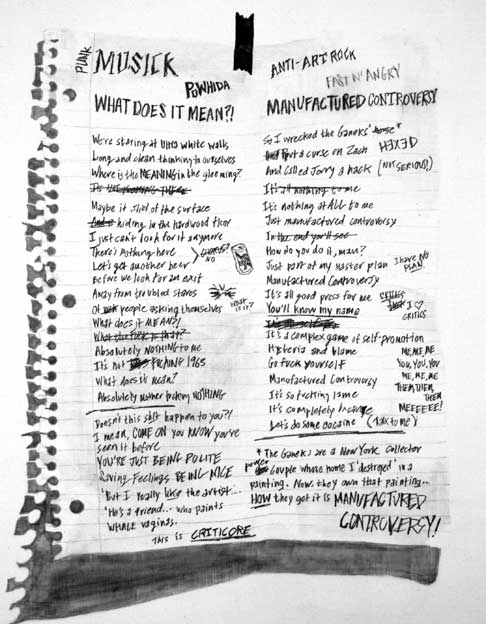 PUNK
MUSICK
POWHIDA
WHAT DOES IT MEAN?!
We're staring at Ultra white walls
Long and clean thinking to ourselves
Where is the MEANING in the gleeming?
Maybe it shed of the surface
And is hiding in the hardwood floor
I just can't look for it anymore
There's nothing here
Let's get another beer
Before we look for an exit
LYRICS?
NO
Away from troubled stares
Of people asking themselves
WHAT IS IT?
What does it MEAN?!
What the fuck is that?
Absolutely NOTHING to me
It's not FUCKING 1965
What does it mean?
Absolutely mother fucking NOTHING
Doesn't this shit happen to you?!
I mean, COME ON you KNOW you've
seen it before
YOU'RE JUST BEING POLITE
Saving Feelings BEING NICE
'But I really like the artist...
'He's a friend... who paints
WHALE vaginas.
This is CRITICORE
ANTI-ART ROCK
FAST N' ANGRY
MANUFACTURED CONTROVERSY
So I wrecked the Ganeks' house*
And Put a curse on Zach HEXED
And called Jerry a hack (NOT SERIOUS!)
It's all nothing to me
It's nothing at ALL to me
Just manufactured controversy
In the end you'll see
How do you do it, man?
Just part of my master plan
I have NO PLAN
Manufactured Controversy
It's all good press for me
You'll know my name
I ♡ CRITICS
It's a complex game of self-promotion
Hysteria and blame
Go fuck yourself
Manufactured Controversy
It's so fucking lame
It's completely insane
Let's do some cocaine (TALK to me)
ME, ME, ME
YOU, YOU, YOU
ME, ME, ME
THEM, THEM,
THEM
MEEEEEE!
* The Ganeks are a New York collector
power couple whose home I 'destroyed' in a
painting. Now they own that painting.
HOW they got it is MANUFACTURED
CONTROVERSY!